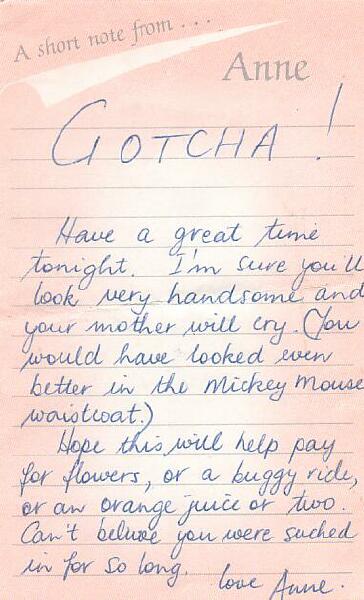 A short note from . . .
Anne
GOTCHA !
Have a great time
tonight. I'm sure you'll
look very handsome and
your mother will cry. (You
would have looked even
better in the Mickey Mouse
waistcoat.)
Hope this will help pay
for flowers, or a buggy ride,
or an orange juice or two.
Can't believe you were sucked
in for so long.
love Anne.